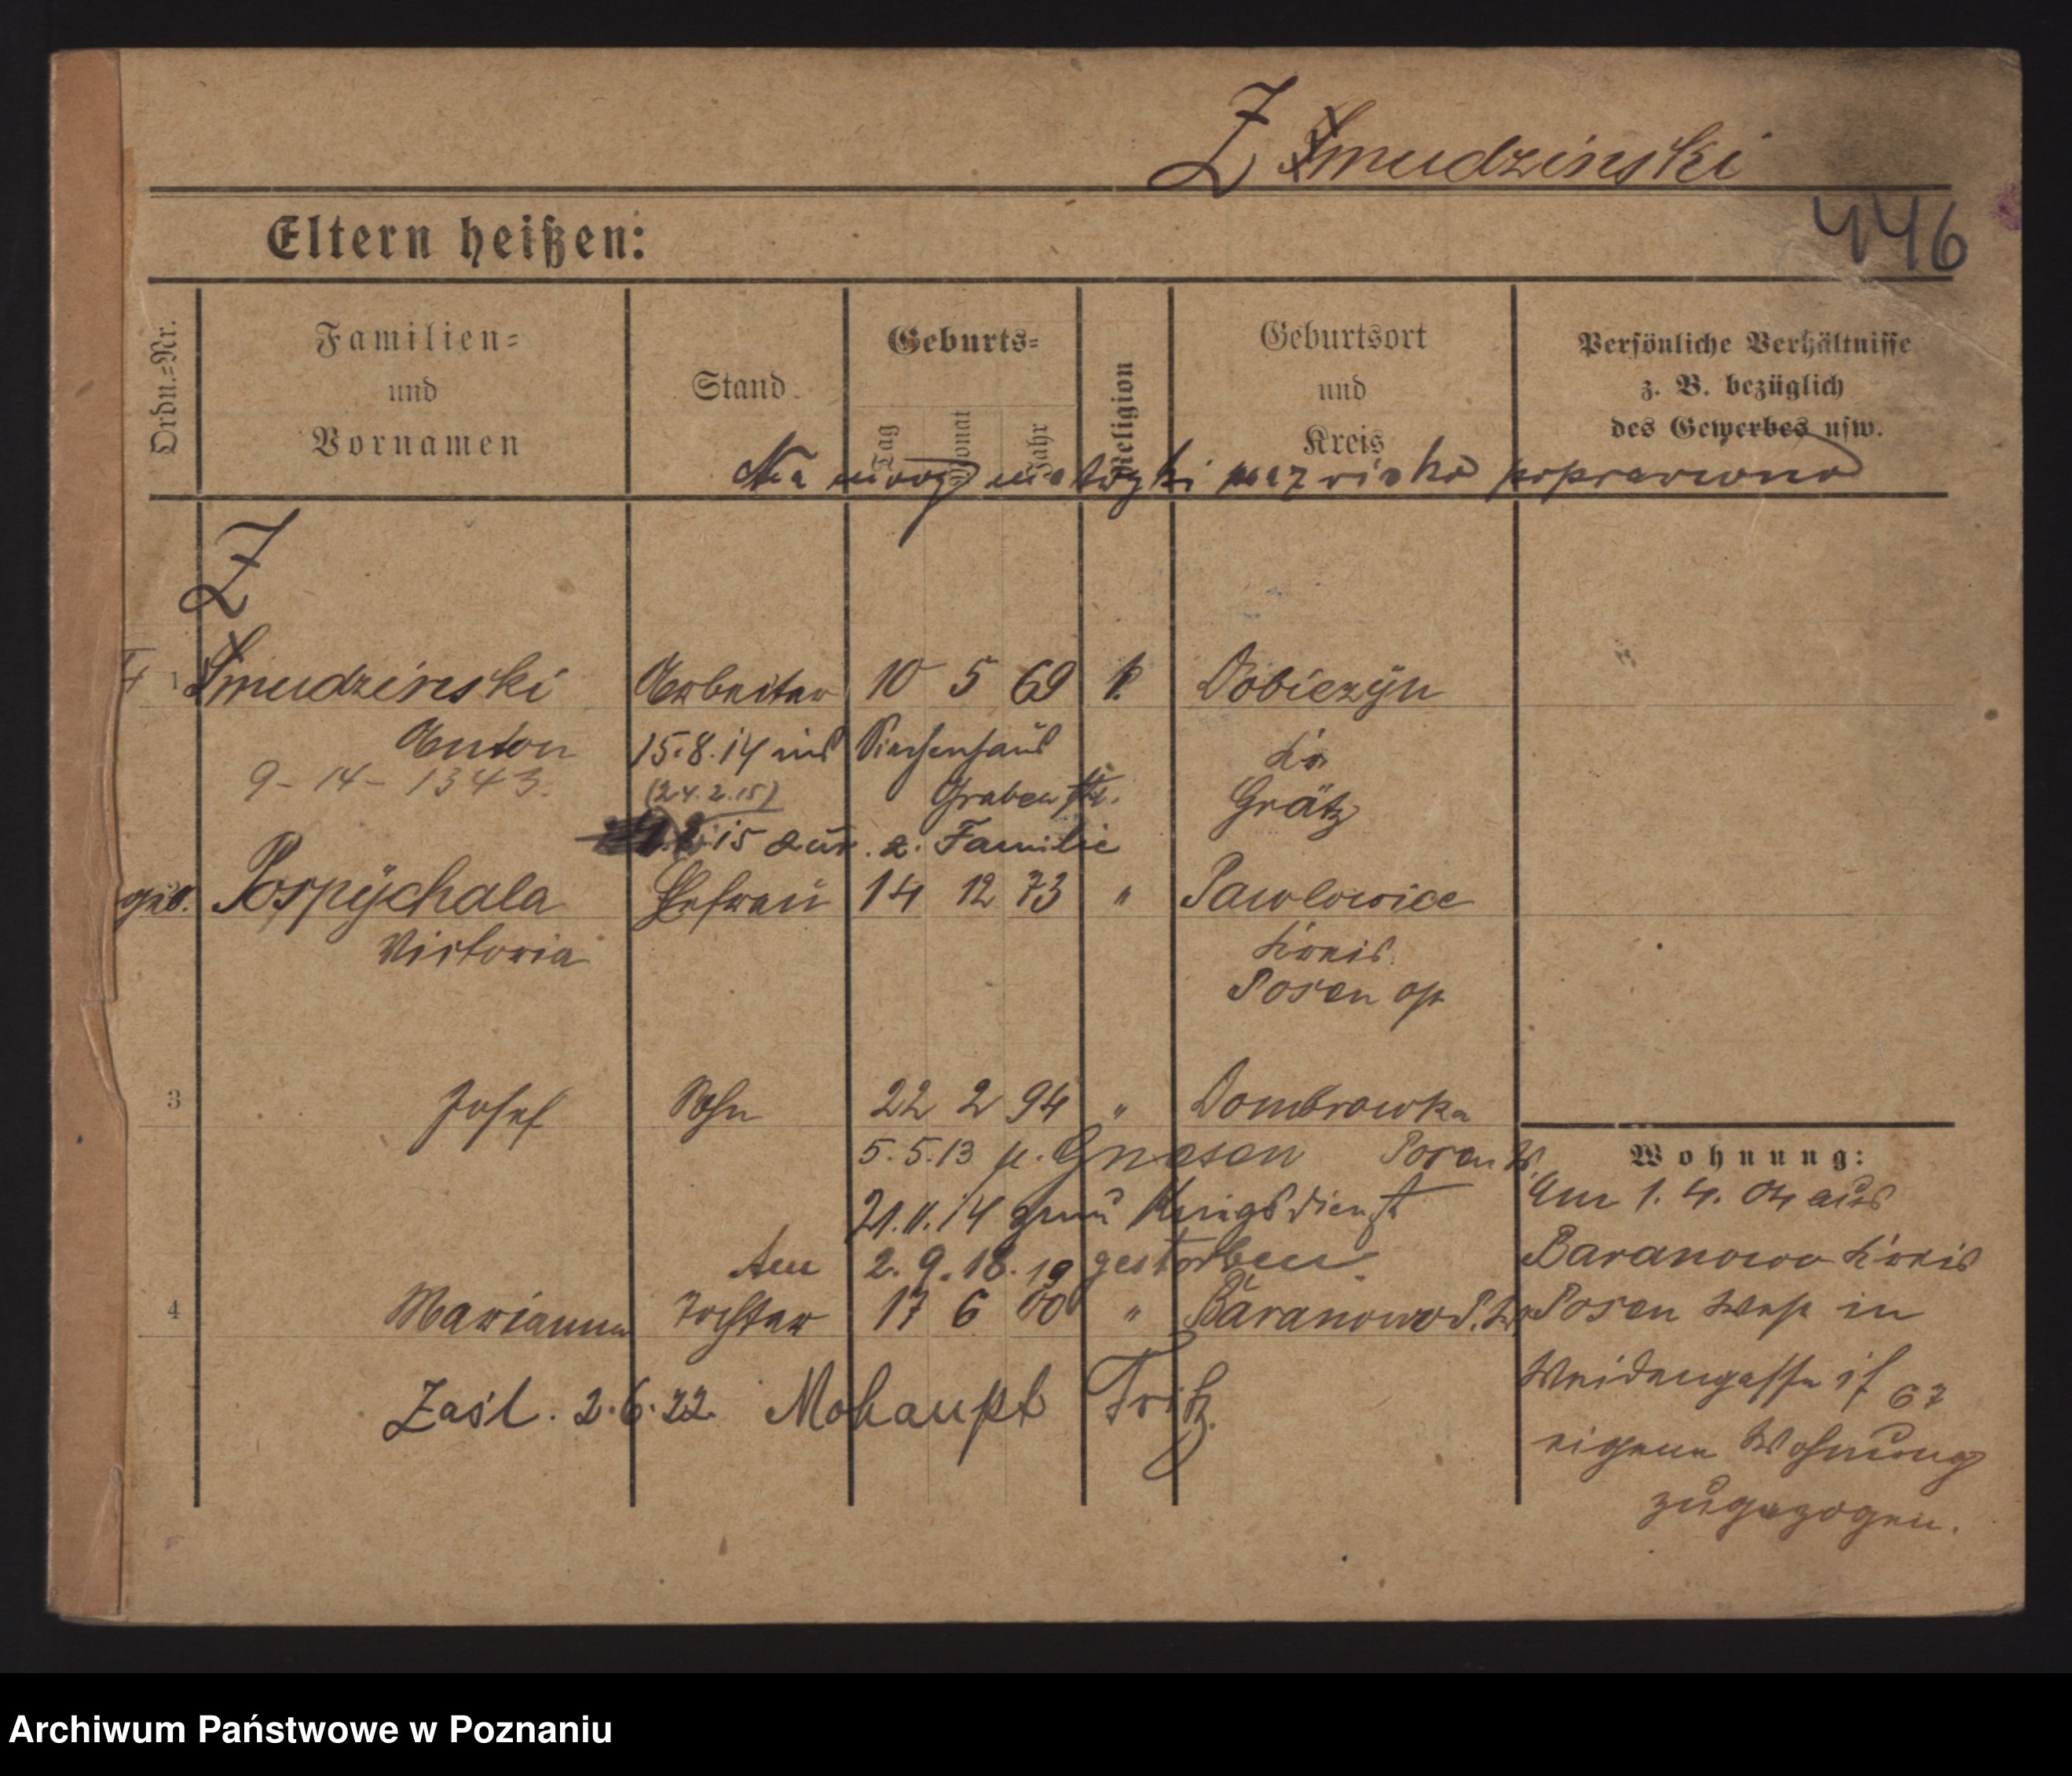 Z Smudzinski
446
Eltern heißen:
Ordn.=Nr.
Familien=
und
Vornamen
Stand
Geburts=
Tag
Monat
Jahr
Religion
Geburtsort
und
Kreis
Persönliche Verhältnisse
z. B. bezüglich
des Gewerbes usw.
Na mocy metryki nazwisko poprawiono
Z
1 Smudzinski Arbeiter 10 5 69 k. Dobiezÿn
Anton 15.8.14 ins Siechenhaus Kr.
9-14-1343. (24.2.15) Grabenstr. Grätz
15 zur. z. Familie
geb. Pospÿchala Ehefrau 14 12 73 " Pawlowice
Victoria Kreis
Posen Ost
3 Josef Sohn 22 2 94 " Dombrowka
5.5.13 n. Gnesen Posen W.
21.11.14 zum Kriegsdienst
Am 2.9.18. gestorben.
19
4 Marianna Tochter 17 6 00 " Baranowo P. W.
Zaśl. 2.6.22. Mohaupt Fritz.
Wohnung:
Am 1.4.04 aus
Baranowo Kreis
Posen West in
Weidengasse 67
eigene Wohnung
zugezogen.
Archiwum Państwowe w Poznaniu